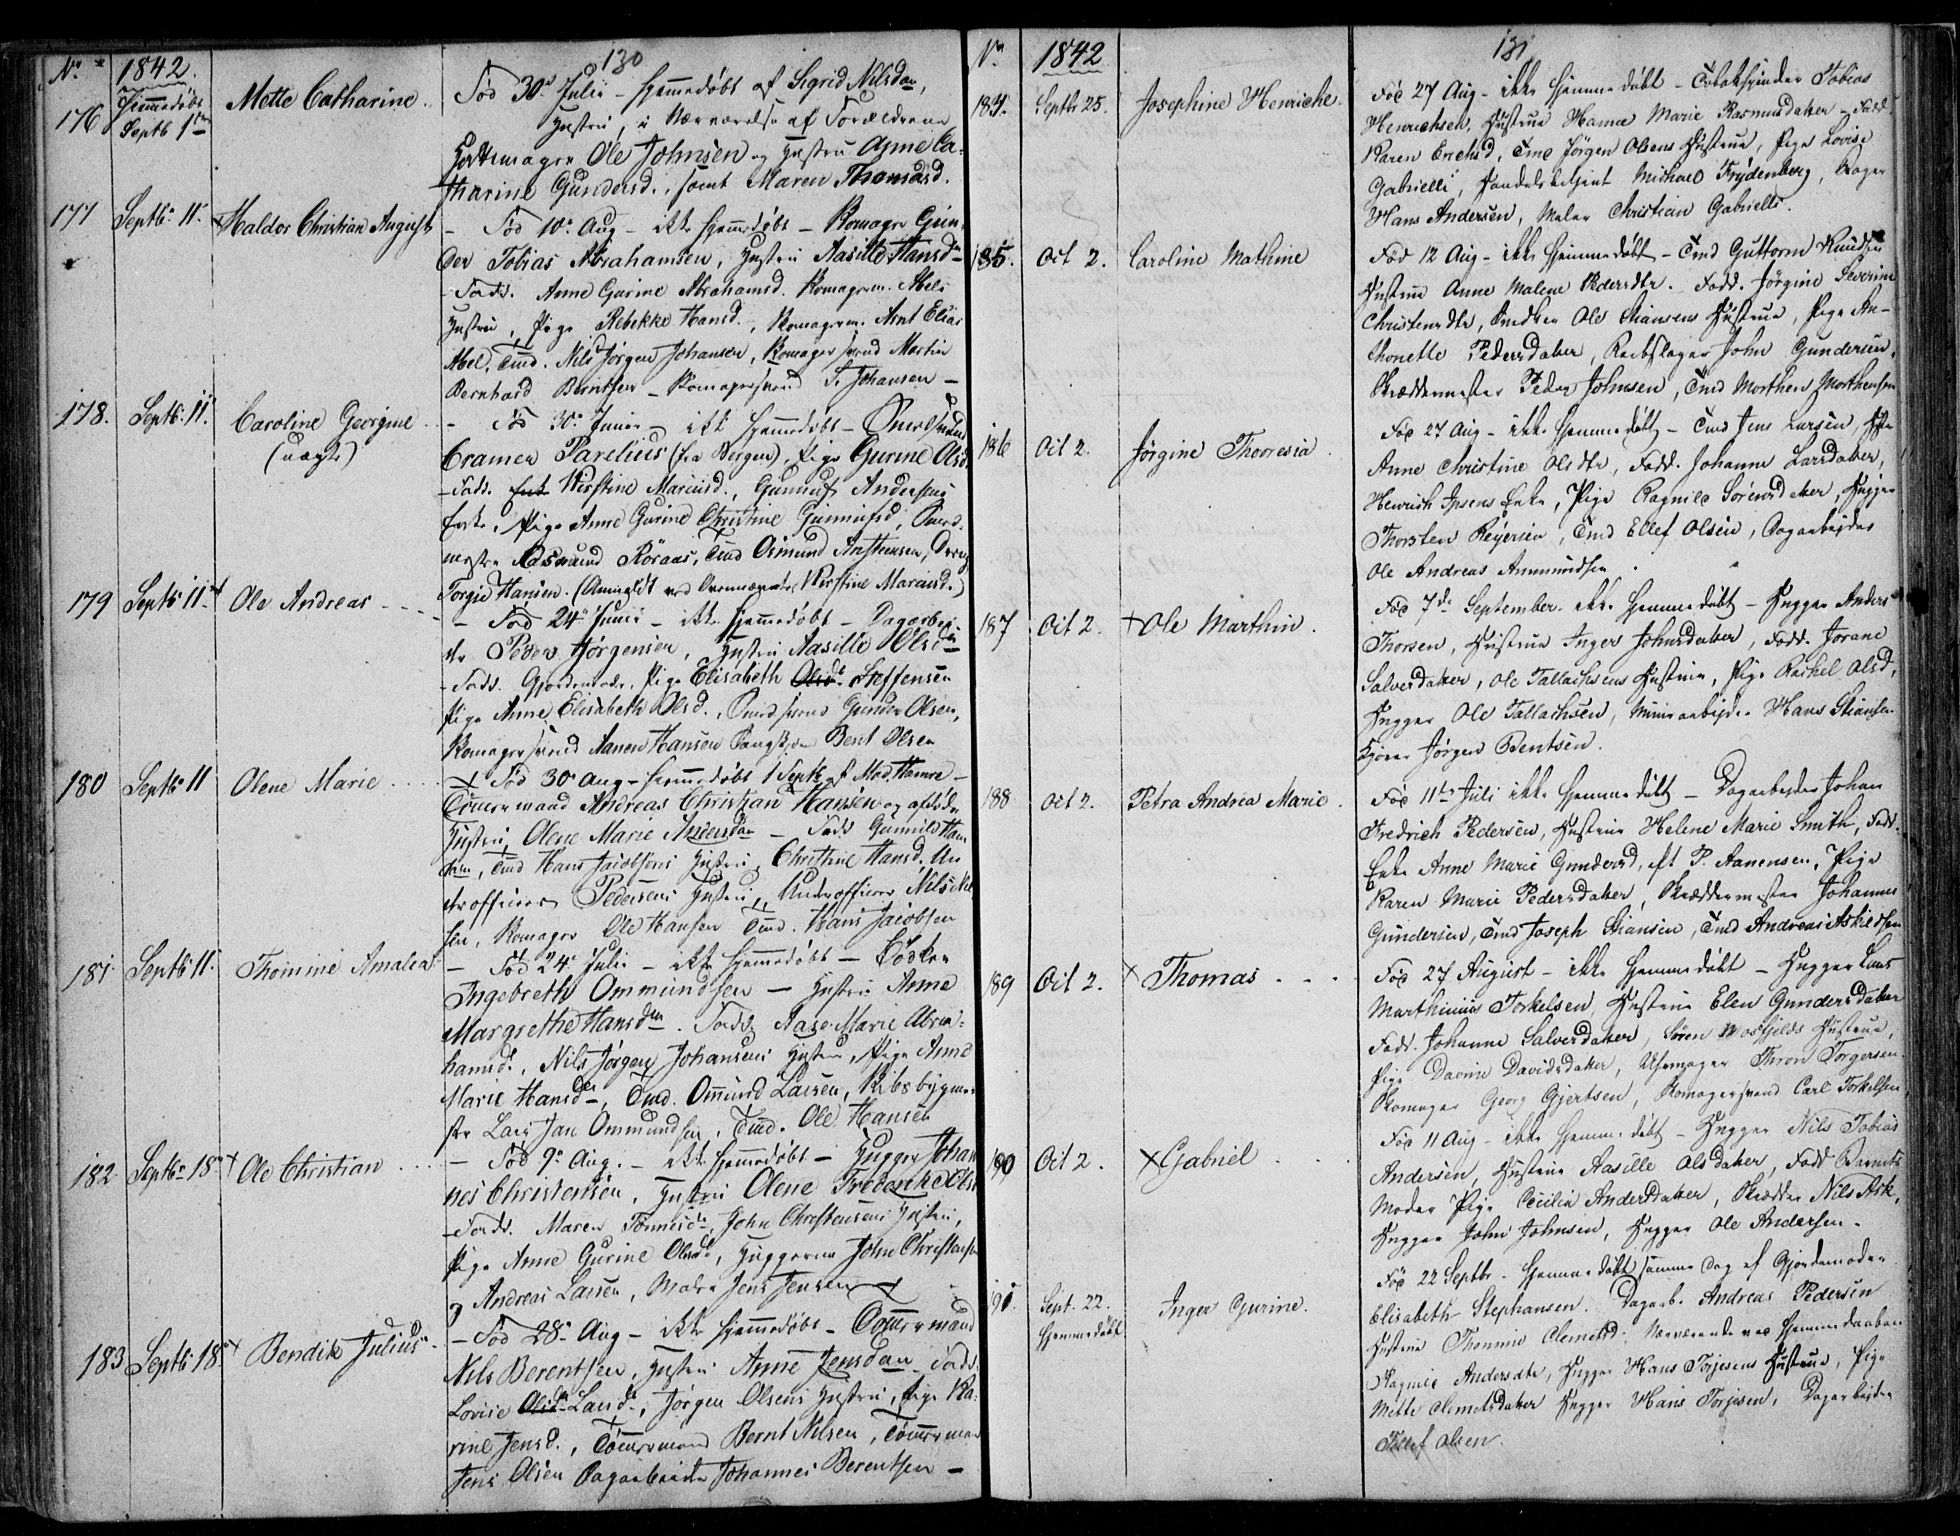 130
No 1842
176 Hjemmedøbt Septb 1ste Mette Catharine. Fød 30te Julii – hjemmedøbt af Sigrid Nilsdatter,
Hustru, i Nærværelse af Forældrene
Ole Johnsen og Hustru Anne Ca-
tharine Gundersd., samt Maren Thomasd.
177 Septb. 11. Haldor Christian August – Fød 10de Aug – ikke hjemmedøbt – Skomager Gun-
der Tobias Abrahamsen, Hustru Aasille Hansd
– Fadd. Anne Gurine Abrahamsd. Skomagerm. Abels
Hustru, Pige Rebekke Hansd., Skomagerm. Arnt Elias
Abel, Tmd. Nils Jørgen Johansen, Skomagersvend Martin
Bernhard Berntsen – Skomagersvend T. Johansen –
178. Septb. 11. Caroline Georgine (uægte) – Fød 30te Junii – ikke hjemmedøbt –
Cramer Parelius (fra Bergen), Pige Gurine Olsd.
– Fadd. Kirstine Mariusd., Gunnuf Andersens
Enke, Pige Anne Gurine Christine Gunnufsd,
Rasmund Röraas, Tmd Osmund Arsteensen, Dreng
Torgie Hansen. (Anmeldt ved Kirstine Mariusd.)
179 Septb 11te Ole Andreas – Fød 24de Junii – ikke hjemmedøbt – Dagarbei-
der Peder Jörgensen, Hustru Aasille Olsd
– Fadd. Gjordemoder, Pige Elisabeth Olsd. Steffensen
Pige Anne Elisabeth Olsd., Smedsvend Gunder Olsen,
Skomagersvend Aanen Hansen Bent Olsen
180 Septb 11 Olene Marie Fød 30 Aug – hjemmedøbt 1 Septb af Mad. Hamre –
Tømmermand Andreas Christian Hansen og afdøde
Hustru Olene Marie Andersdatter – Fadd Gunnild Ham
Tmd Hans Jacobsens Hustru, Christine Hansd, Un
derofficer Pedersens Hustru, Underofficer Nils
Skomager Ole Hansen Tmd. Hans Jacobsen
181. Septb 11. Thomine Amalia – Fød 24de Julii – ikke hjemmedøbt – Bødker
Ingebreth Ommundsen – Hustru Anne
Margrethe Hansd. Fadd. Aase Marie Abra-
hamsd., Nils Jørgen Johansens Hustru, Pige Anne
Marie Hansd, Tmd. Ommund Larsen, Skibsbygme-
ster Lars Jan Ommundsen, Tmd. Ole Hansen
182. Septb 18de + Ole Christian – Fød 9de Aug. – ikke hjemmedøbt – Hugger Johan
nes Christensen, Hustru Olene Frederikke Olsd
– Fadd. Maren Tønnesd., John Christensens Hustru,
Pige Anne Gurine Olsd, Huggerne John Christensen
og Andreas Larsen, Maler Jens Jensen
183 Septb 18 + Bendik Julius – Fød 28de Aug – ikke hjemmedøbt – Tømmermand
Nils Berentsen, Hustru Anne Jensdatter – Fadd.
Lovise Olsd. Land, Jørgen Olsens Hustru, Pige Ka-
rine Jensd., Tømmermand Bernt Nilsen, Tømmerman
Jens Olsen Dagarbeider Johannes Berentsen –
131
No 1842
184. Septbr 25. Josephine Henriche. Fød 27 Aug – ikke hjemmedøbt – Tobakspinder Tobias
Henrichsen, Hustrue Hanne Marie Rasmusdatter – Fadd.
Karen Erichsd, Tmd Jørgen Olsens Hustrue, Pige Lovise
Gabrielli, Handelsbetjent Michael Frydenberg, Bager
Hans Andersen, Maler Christian Gabrielli.
185. Oct 2. Caroline Mathine Fød 12 Aug – ikke hjemmedøbt – Tmd Guttorm Knudsen
Hustrue Anne Malene Pedersdtr. Fadd. Jørgine Severine
Christensdtr, Ole Stiansens Hustrue, Pige An-
thonette Pedersdatter, Rebslager John Gundersen,
Skræddermester Peder Johnsen, Tmd Morthen Morthensen
186 Oct 2. Jørgine Thorresia. Fød 27 Aug – ikke hjemmedøbt – Tmd Jens Larsen, Hstr
Anne Christine Olsdtr, Fadd. Johanne Larsdatter,
Henrich Ipsens Enke, Pige Ragnild Sørensdatter, Hugger
Thorsten Reyersen, Tmd Ellef Olsen, Dagarbejder
Ole Andreas Ammundsen.
187 Oct 2. + Ole Marthin. Fød 7de September – ikke hjemmedøbt – Hugger Anders
Thorsen, Hustrue Inger Johnsdatter, Fadd. Jorane
Salvesdatter, Ole Tallachsens Hustrue, Pige Rachel Olsd,
Hugger Ole Tallachsen, Minearbejder Hans Stiansen
Jørgen Bentsen.
188 Oct 2. Petra Andrea Marie. Fød 11te Juli ikke hjemmedøbt – Dagarbejder Johan
Fredrich Pedersen, Hustrue Helene Marie Smith, Fadd.
Enke Anne Marie Gundersd, P. Aanensen, Pige
Karen Marie Pedersdatter, Skræddermester Johannes
Gundersen, Tmd Joseph Stiansen, Tmd Andreas Askildsen
189 Oct 2. + Thomas Fød 27 August – ikke hjemmedøbt – Hugger Lars
Marthinius Torkelsen, Hustrue Elen Gundersdatter
Fadd. Johanne Salvesdatter, Søren Mosfjelds Hustrue,
Pige Davine Davidsdatter, Uhrmager Thron Torgersen.
Skomager Georg Gjertsen, Skomagersvend Carl Torkelsen,
190 Oct 2. + Gabriel Fød 11 Aug – ikke hjemmedøbt – Hugger Nils Tobias
Andersen, Hustrue Aasille Olsdatter, Fadd Barnets
Moder Pige Cecilia Andersdatter, Skrædder Nils Ask,
Hugger John Johnsen, Hugger Ole Andersen.
191. Sept. 22. hjemmedøbt Inger Gurine. Fød 22 Septbr. hjemmedøbt samme Dag af Gjordemoder
Elisabeth Stephansen. Dagarb. Andreas Pedersen
Hustrue Thomine Clemetsd. Nærværende ved Hjemmedaaben
Ragnild Andersdtr, Hugger Hans Torjesens Hustrue, Pige
Mette Clemetsdatter Hugger Hans Torjesen, Dagarbejder
Tellef Olsen.